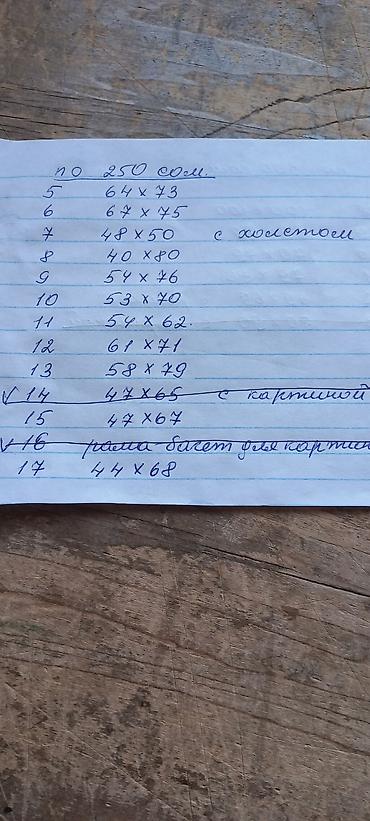 по 250 сом.
5 64 х 73
6 67 х 75
7 48 х 50 с холстом
8 40 х 80
9 54 х 76
10 53 х 70
11 54 х 62.
12 61 х 71
13 58 х 79
√ 14 47 х 65 с картиной
15 47 х 67
√ 16 рама-багет для картин
17 44 х 68